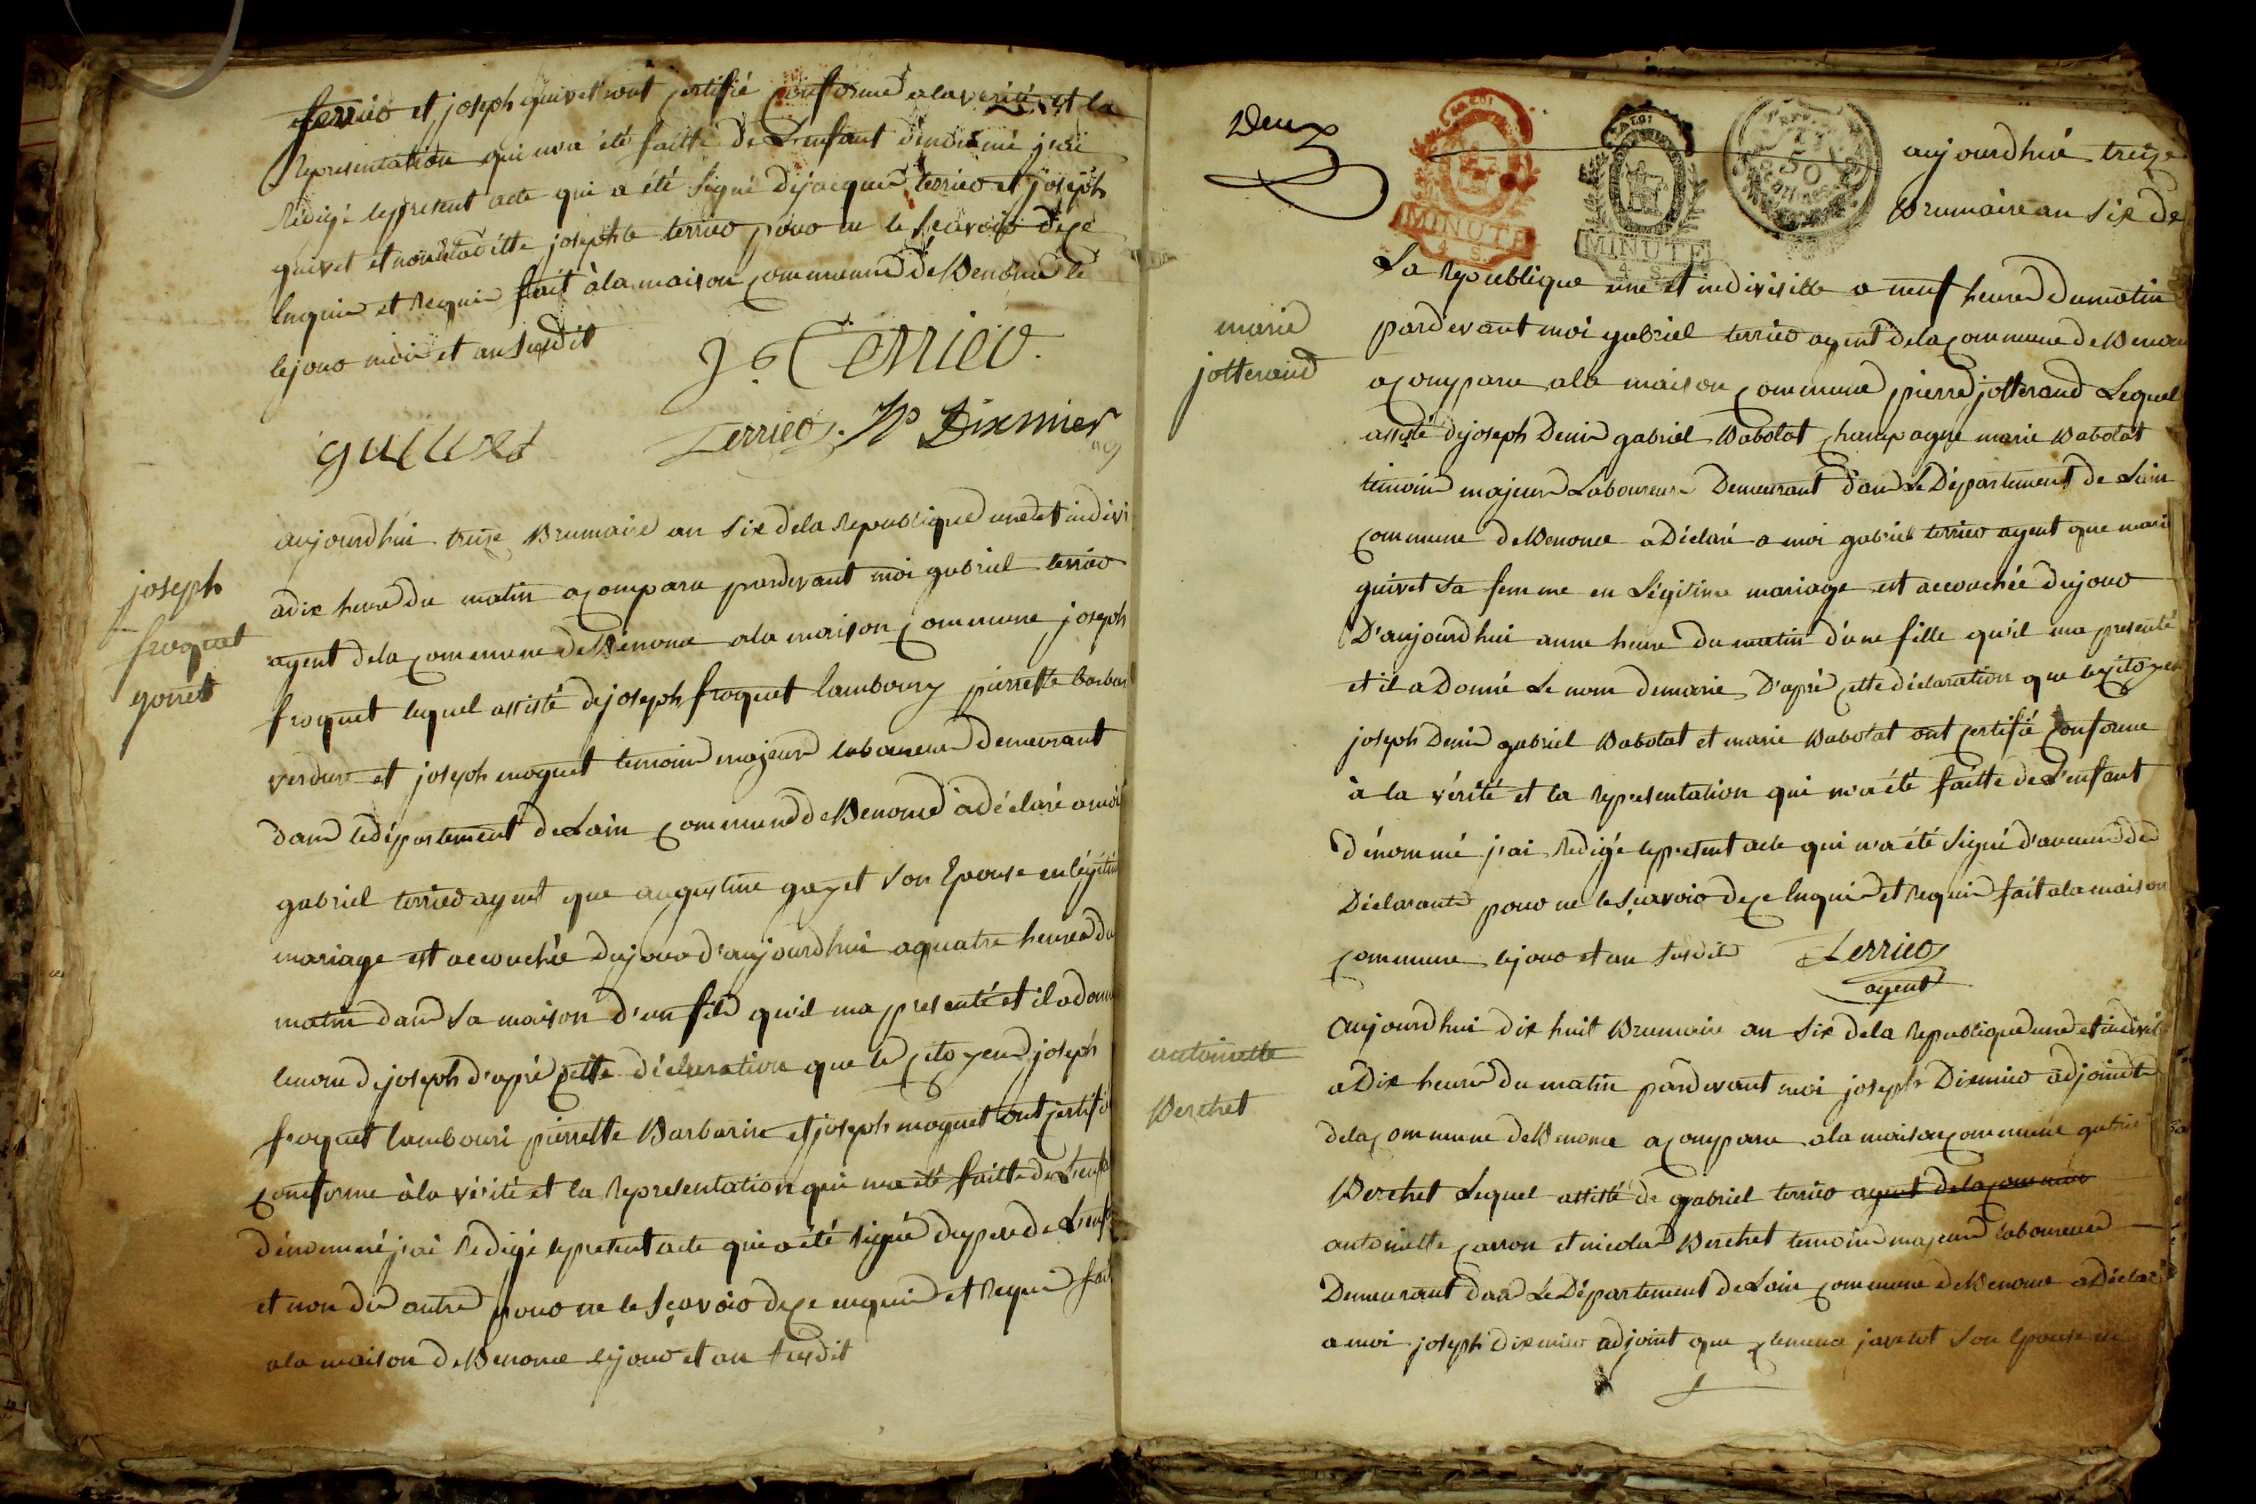 terrier et joseph guivet ont certifié conforme a la verité et la
Representation qui m'a été faitte de L'enfant dénommé j'ai
Rédigé le present acte qui a été signé de jacque terrier et joseph
guivet et non de laditte josephte terrier pour ne le sçavoir de ce
Enquis et Requis fait à la maison commune de Benonce le
le jour mois et an susdit
Js Terrier.
guivet Terrier. Dixmier
joseph
froquet
gonet
aujourdhui treize Brumaire an six de la Republique une et indivi
a dix heure du matin a comparu pardevant moi gabriel terrier
agent de la commune de Benonce a la maison commune joseph
froquet lequel assisté de joseph froquet lamboury pierrette barbar
verdure et joseph moquet temoins majeurs laboureur demeurant
dans le département de L'ain commune de Benonce a déclaré a moi
gabriel terrier agent que augustine gonet son Epouse en légitim
mariage est accouchée du jour d'aujourdhui a quatre heures du
matin dans sa maison d'un fils qu'il ma presenté et il a donné
le nom de joseph d'apré cette déclaration que le citoyens joseph
froquet lambouri pierrette Barbarin et joseph moquet ont certifié
conforme à la vérité et la Representation qui ma été faitte de L'enfa
dénommé j'ai Redigé le present acte qui a été signé du pere de L'enf
et non des autres pour ne le sçavoir de ce enquis et Requis fait
a la maison de Benonce le jour et an susdit
Deux
LA LOI
MINUTE
4 S.
LA LOI
MINUTE
4 S.
50
aujourdhui treize
Brumaire an six de
La Republique une et indivisible a neuf heures du matin
pardevant moi gabriel terrier agent de la commune de Benon
marie
jotterand
a comparu a la maison commune pierre jotterand Lequel
assisté de joseph Denis gabriel Babolat champagne marie Babolat
temoins majeurs Laboureurs Demeurant dans Le Département de L'ain
commune de Benonce a Déclaré a moi gabriel terrier agent que marie
guivet sa femme en Légitime mariage est accouchée du jour
D'aujourdhui a une heure du matin d'une fille qu'il ma presenté
et il a Donné Le nom de marie D'apré cette déclaration que le citoyen
joseph Denis gabriel Babolat et marie Babolat ont certifié conforme
à la vérité et la Representation qui m'a été faitte de L'enfant
dénommé j'ai Redigé le present acte qui n'a été signé d'aucuns des
Déclarants pour ne le sçavoir de ce Enquis et Requis fait a la maison
commune le jour et an susdits Terrier
agent
antoinette
Berchet
aujourdhui dix huit Brumaire an six de la Republique une et indivis
a Dix heures du matin pardevant moi joseph Dixmier adjoint
de la commune de Benonce a comparu a la maison commune
Berchet Lequel assisté de gabriel terrier agent de la commune
antoinette carron et nicolas Berchet temoins majeurs laboureurs
Demeurant dans Le Département de L'ain commune de Benonce a Déclaré
a moi joseph dixmier adjoint que javelot son Epouse en